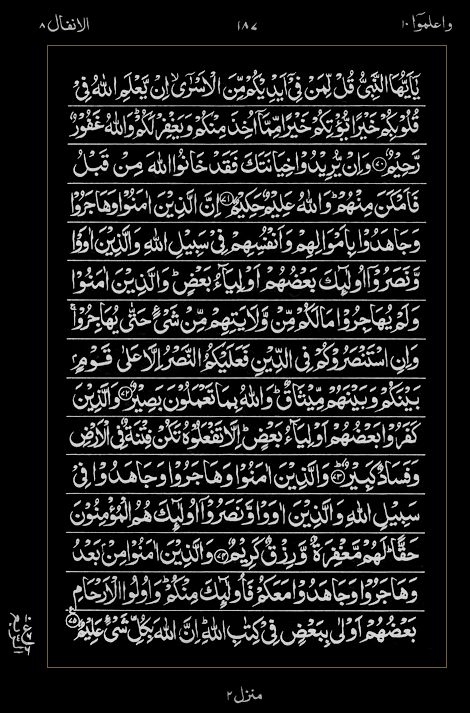 واعلموا ١٠ ١٨٧ الانفال ٨
يٰۤاَيُّهَا النَّبِيُّ قُلْ لِّمَنْ فِيْۤ اَيْدِيْكُمْ مِّنَ الْاَسْرٰٓى ۙ اِنْ يَّعْلَمِ اللّٰهُ فِيْ
قُلُوْبِكُمْ خَيْرًا يُّؤْتِكُمْ خَيْرًا مِّمَّاۤ اُخِذَ مِنْكُمْ وَيَغْفِرْ لَكُمْ ؕ وَاللّٰهُ غَفُوْرٌ
رَّحِيْمٌ ﴿٧٠﴾ وَاِنْ يُّرِيْدُوْا خِيَانَتَكَ فَقَدْ خَانُوا اللّٰهَ مِنْ قَبْلُ
فَاَمْكَنَ مِنْهُمْ ؕ وَاللّٰهُ عَلِيْمٌ حَكِيْمٌ ﴿٧١﴾ اِنَّ الَّذِيْنَ اٰمَنُوْا وَهَاجَرُوْا
وَجَاهَدُوْا بِاَمْوَالِهِمْ وَاَنْفُسِهِمْ فِيْ سَبِيْلِ اللّٰهِ وَالَّذِيْنَ اٰوَوْا
وَّنَصَرُوْۤا اُولٰٓئِكَ بَعْضُهُمْ اَوْلِيَآءُ بَعْضٍ ؕ وَالَّذِيْنَ اٰمَنُوْا
وَلَمْ يُهَاجِرُوْا مَا لَكُمْ مِّنْ وَّلَايَتِهِمْ مِّنْ شَيْءٍ حَتّٰى يُهَاجِرُوْا ۚ
وَاِنِ اسْتَنْصَرُوْكُمْ فِى الدِّيْنِ فَعَلَيْكُمُ النَّصْرُ اِلَّا عَلٰى قَوْمٍۭ
بَيْنَكُمْ وَبَيْنَهُمْ مِّيْثَاقٌ ؕ وَاللّٰهُ بِمَا تَعْمَلُوْنَ بَصِيْرٌ ﴿٧٢﴾ وَالَّذِيْنَ
كَفَرُوْا بَعْضُهُمْ اَوْلِيَآءُ بَعْضٍ ؕ اِلَّا تَفْعَلُوْهُ تَكُنْ فِتْنَةٌ فِى الْاَرْضِ
وَفَسَادٌ كَبِيْرٌ ﴿٧٣﴾ وَالَّذِيْنَ اٰمَنُوْا وَهَاجَرُوْا وَجَاهَدُوْا فِيْ
سَبِيْلِ اللّٰهِ وَالَّذِيْنَ اٰوَوْا وَّنَصَرُوْۤا اُولٰٓئِكَ هُمُ الْمُؤْمِنُوْنَ
حَقًّا ؕ لَهُمْ مَّغْفِرَةٌ وَّرِزْقٌ كَرِيْمٌ ﴿٧٤﴾ وَالَّذِيْنَ اٰمَنُوْا مِنْۢ بَعْدُ
وَهَاجَرُوْا وَجَاهَدُوْا مَعَكُمْ فَاُولٰٓئِكَ مِنْكُمْ ؕ وَاُولُوا الْاَرْحَامِ
بَعْضُهُمْ اَوْلٰى بِبَعْضٍ فِيْ كِتٰبِ اللّٰهِ ؕ اِنَّ اللّٰهَ بِكُلِّ شَيْءٍ عَلِيْمٌ ﴿٧٥﴾
منزل ٢